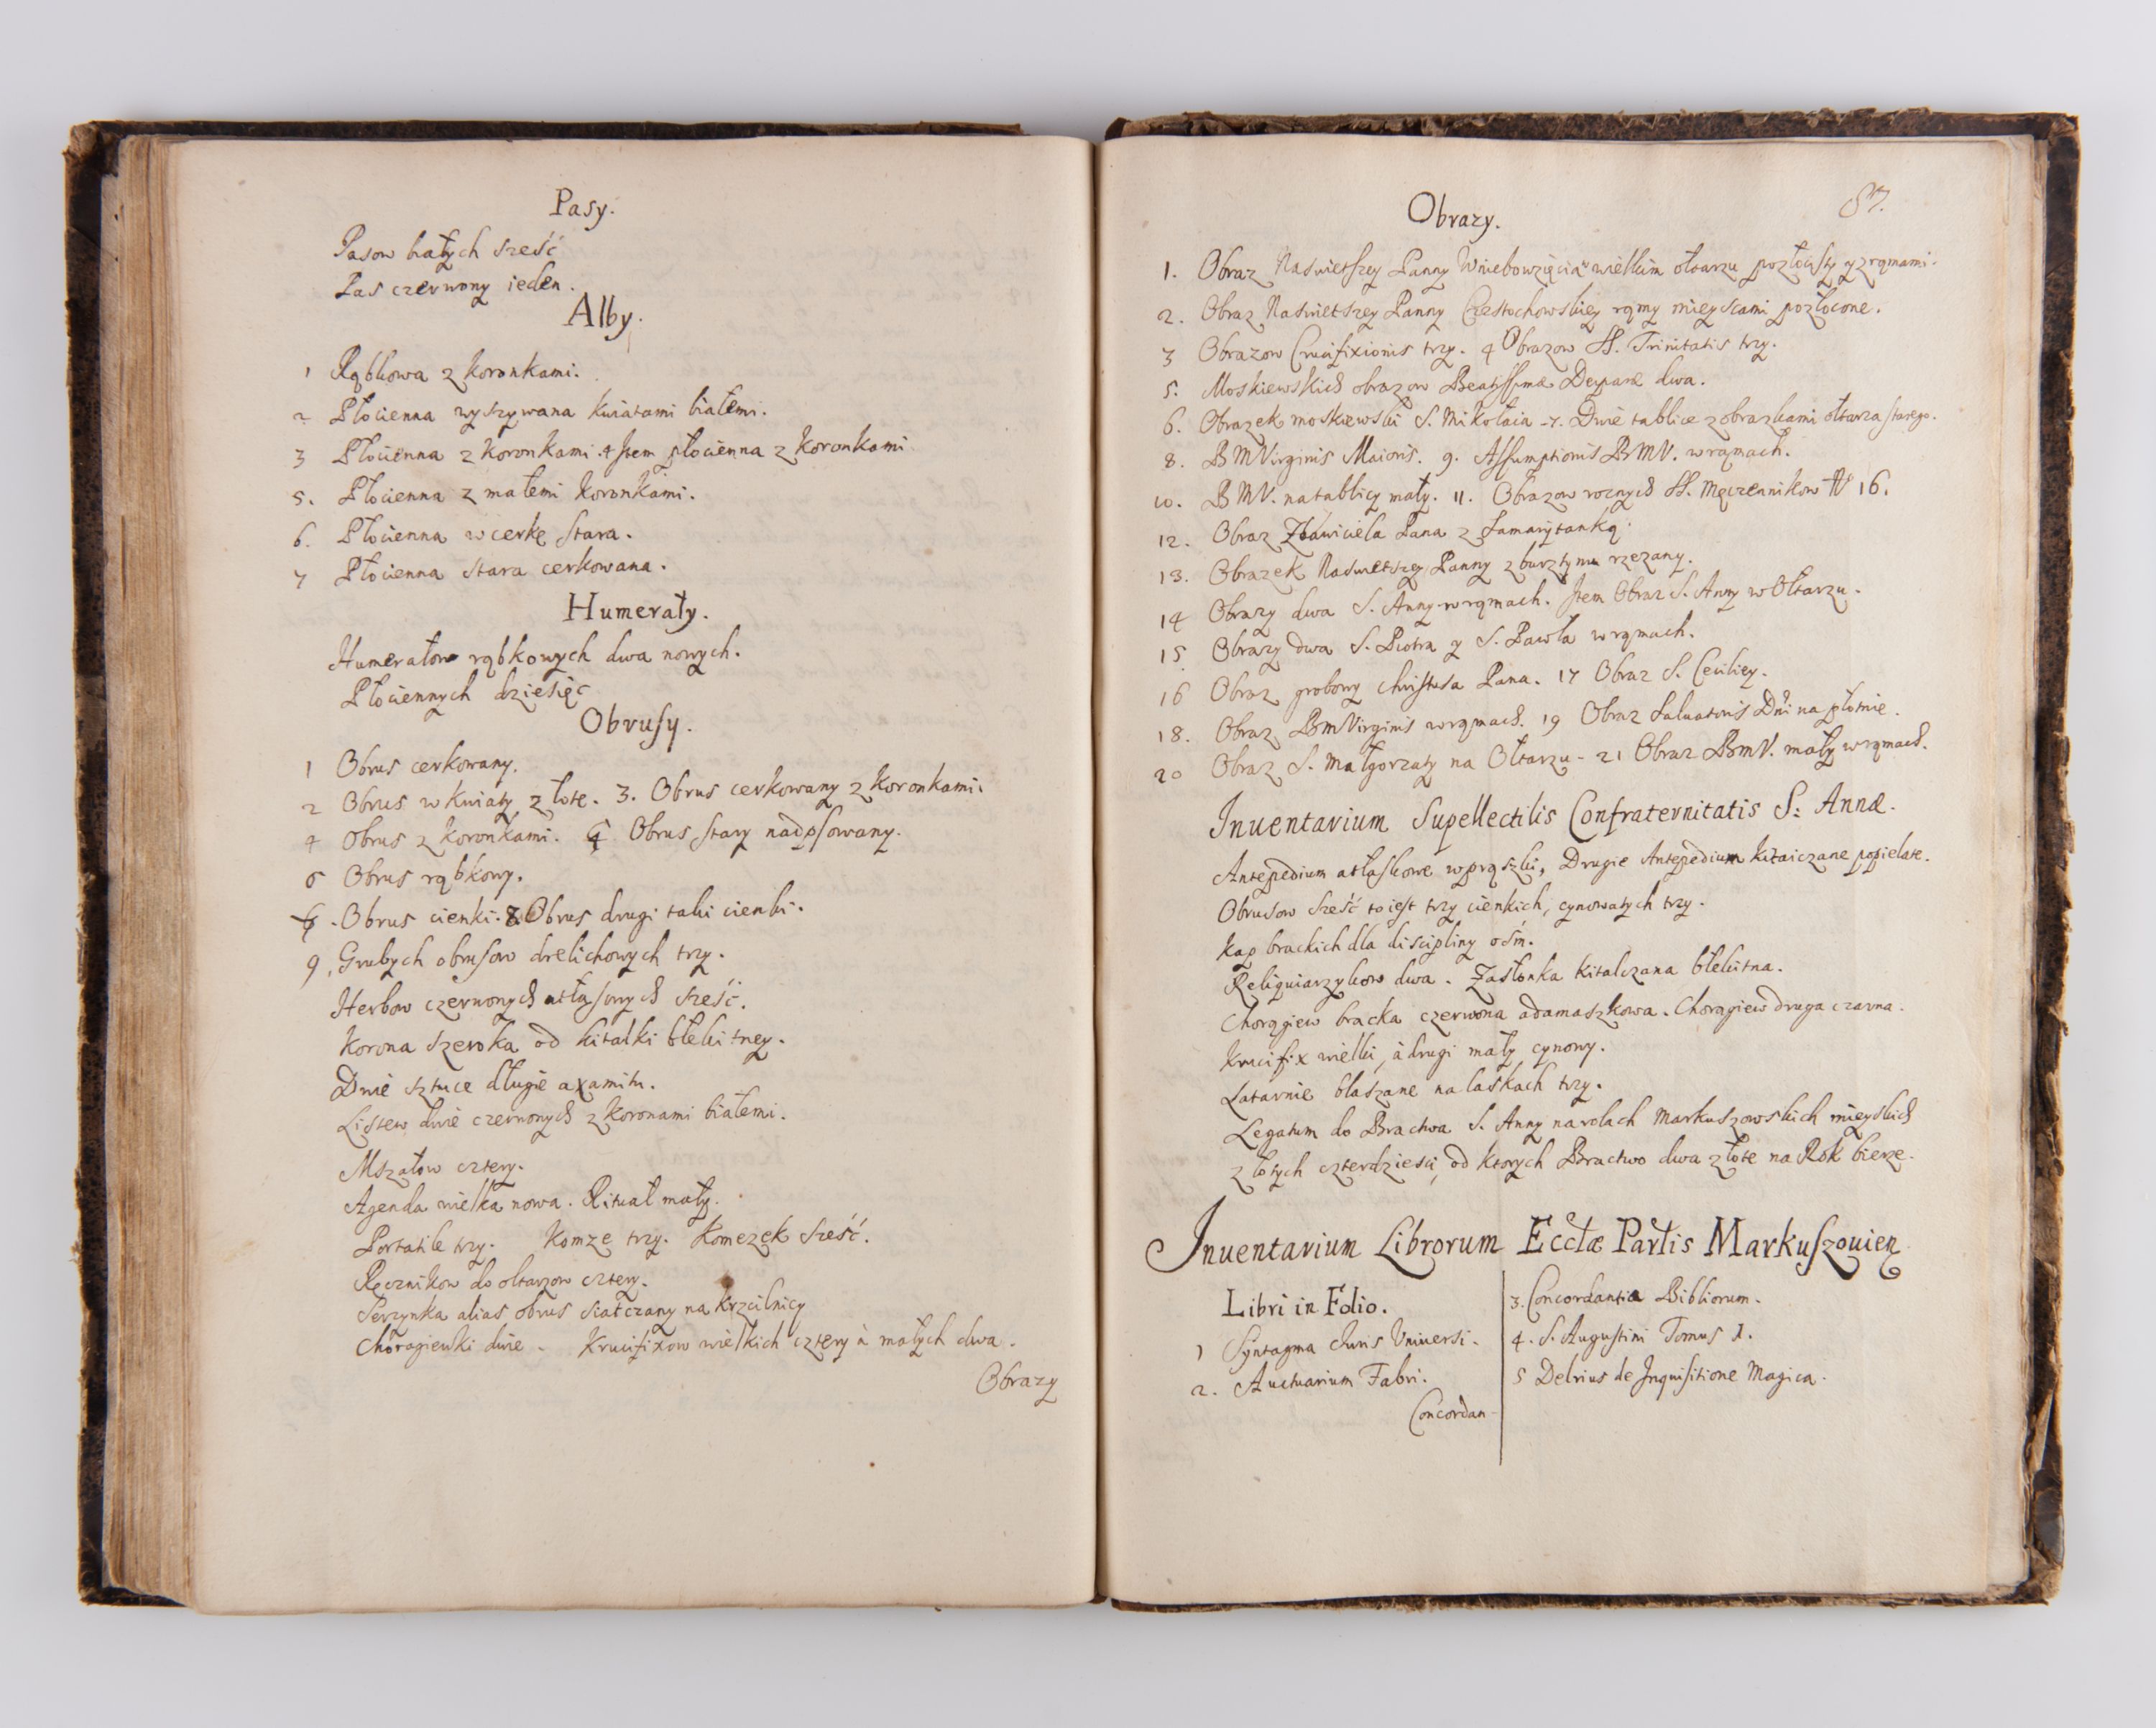 Pasy.
Pasow białych sześć
Pas czerwony ieden.
Alby.
1 Rąbkowa z koronkami.
2 Płocienna wyszywana kwiatami białemi.
3 Płocienna z koronkami. 4 Item płocienna z koronkami
5. Płocienna z małemi koronkami.
6. Płocienna w cerkę stara.
7 Płocienna stara cerkowana.
Humerały.
Humerałow rąbkowych dwa nowych.
Płociennych dziesięć
Obrusy.
1 Obrus cerkowany.
2 Obrus w kwiaty złote. 3. Obrus cerkowany z koronkami.
4 Obrus z koronkami. Obrus stary nadpsowany.
6 Obrus rąbkowy.
Obrus cienki. 8 Obrus drugi taki cienki.
9, Grubych obrusow drelichowych trzy.
Herbow czerwonych atłasowych sześć.
Korona szeroka od kitaiki błekitney.
Dwie sztuce długie axamitu.
Listew dwie czerwonych z koronami białemi.
Mszałow cztery.
Agenda wielka nowa. Rituał mały.
Portatile trzy. Komze trzy. Komezek sześć.
Ręcznikow do ołtarzow cztery.
Serzynka alias obrus siatczany na krzcilnicy
Chorągiewki dwie. Krucifixow wielkich cztery à małych dwa.
Obrazy
87.
Obrazy.
1. Obraz Naświetszey Panny Wniebowzięcia w wielkim ołtarzu pozłocisty y z rąmami.
2. Obraz Naświetszey Panny Czestochowskiey rąmy mieyscami pozłocone.
3 Obrazow Crucifixionis trzy. 4 Obrazow SS. Trinitatis trzy.
5. Moskiewskich obrazow Beatissimæ Deiparæ dwa.
6. Obrazek moskiewski S. Mikołaia. 7. Dwie tablice z obrazkami ołtarza starego.
8. BMVirginis Maioris. 9. Assumptionis BMV. w rąmach.
10. BMV. na tablicy mały. 11. Obrazow roznych SS. Męczennikow 16.
12. Obraz Zbawiciela Pana z Samarytanką.
13. Obrazek Naświetszey Panny z bursztynu rzezany.
14 Obrazy dwa S. Anny w rąmach. Item Obraz S. Anny w Ołtarzu.
15. Obrazy dwa S. Piotra y S. Pawła w rąmach.
16 Obraz grobowy Christusa Pana. 17 Obraz S. Ceciliey.
18. Obraz BmVirginis w rąmach. 19 Obraz Saluatoris Dñi na płotnie.
20 Obraz S. Małgorzaty na Ołtarzu. 21 Obraz BmV. mały w rąmach.
Inuentarium Supellectilis Confraternitatis S: Annæ.
Antepedium atłaskowe w prążki, Drugie Antepedium kitaiczane popielate.
Obrusow sześć to iest trzy cienkich, cynowatych trzy.
Kap brackich dla discipliny ośm.
Reliquiarzykow dwa. Zasłonka kitaiczana błekitna.
Chorągiew bracka czerwona adamaszkowa. Chorągiew druga czarna.
Krucifix wielki, à drugi mały cynowy.
Latarnie blaszane na laskach trzy.
Legatum do Bractwa S. Anny na rolach Markuszowskich mieyskich
złotych czterdzieści, od ktorych Bractwo dwa złote na Rok bierze.
Inuentarium Librorum Ecctæ Partis Markuszouien
Libri in Folio.
1 Syntagma Iuris Vniuersi.
2. Auctuarium Fabri.
Concordan-
3. Concordantia Bibliorum.
4. S. Augustini Tomus 1.
5 Delrius de Inquisitione Magica.